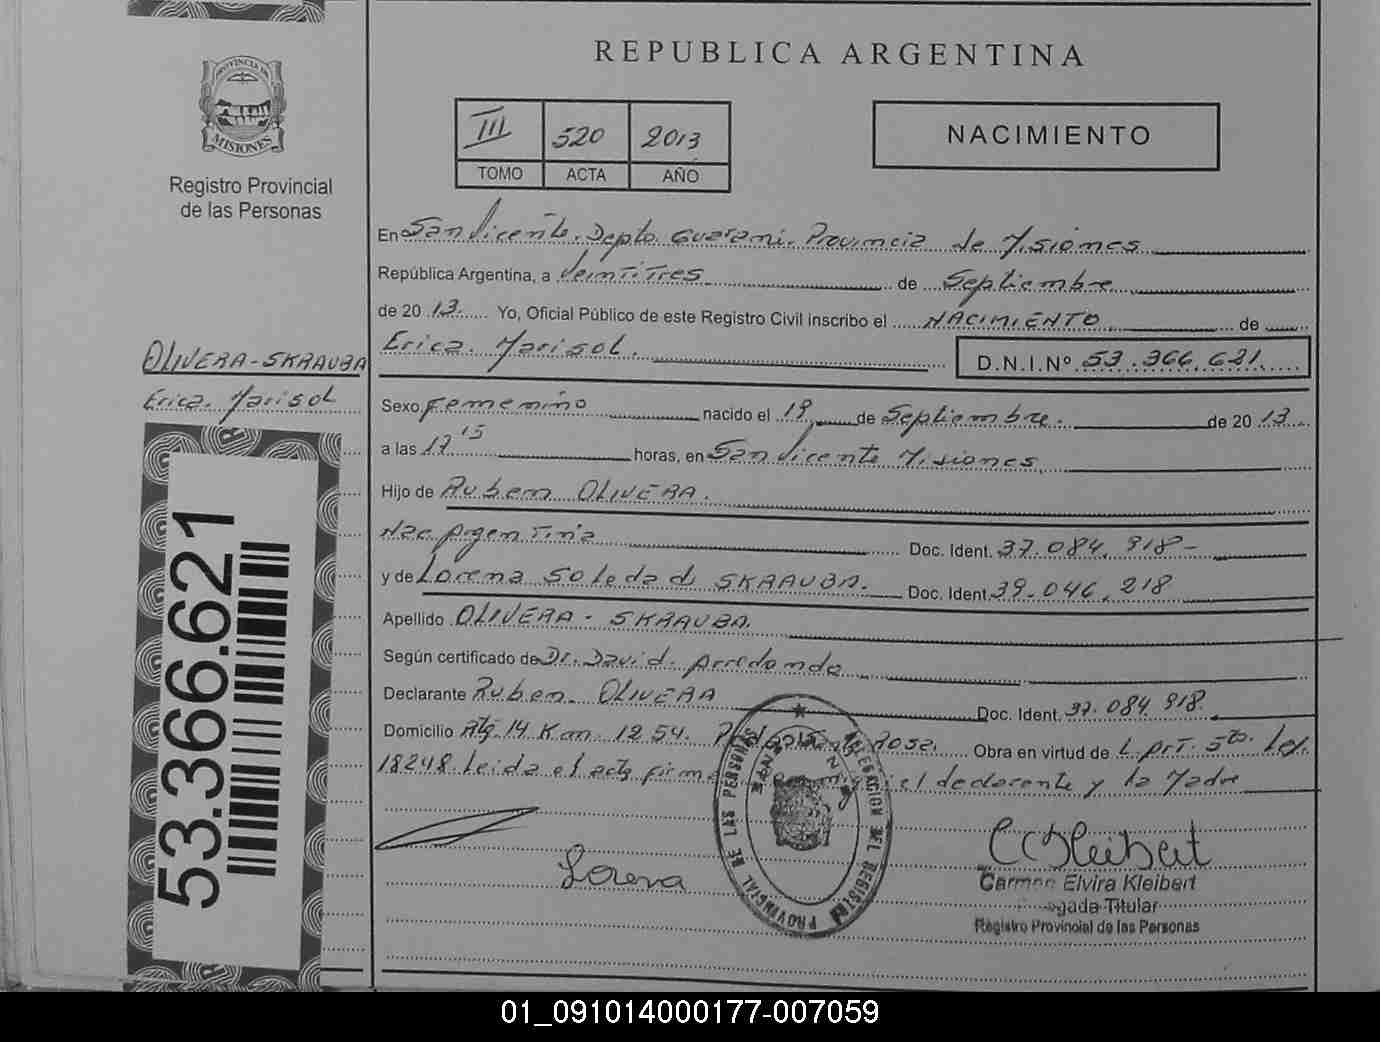 REPUBLICA ARGENTINA
PROVINCIA DE
MISIONES
Registro Provincial
de las Personas
III 520 2013
TOMO ACTA AÑO
NACIMIENTO
En San Vicente. Depto. Guarani. Provincia de Misiones
República Argentina, a Veintitres de Septiembre
de 20 13. Yo, Oficial Público de este Registro Civil inscribo el NACIMIENTO de
Erica. Marisol. D.N.I.Nº 53.366.621.
OLIVERA-SKRAUBA
Erica. Marisol
Sexo Femenino nacido el 19 de Septiembre. de 20 13.
a las 17 15 horas, en San Vicente Misiones
Hijo de Ruben OLIVERA.
Nac Argentina Doc. Ident. 37.084.918-
y de Lorena Soledad SKRAUBA. Doc. Ident. 39.046.218
Apellido OLIVERA - SKRAUBA.
Según certificado de Dr. David. Arredondo
Declarante Ruben. OLIVERA Doc. Ident. 37.084 918.
Domicilio Ruta 14 Km. 1254. Obra en virtud de L. Art. 5to. Ley
18248. Leida el acta firma el declarante y la Madre
53.366.621
Lorena
DELEGACION DEL REGISTRO PROVINCIAL DE LAS PERSONAS
CKleibert
Carmen Elvira Kleibert
Titular
Registro Provincial de las Personas
01_091014000177-007059